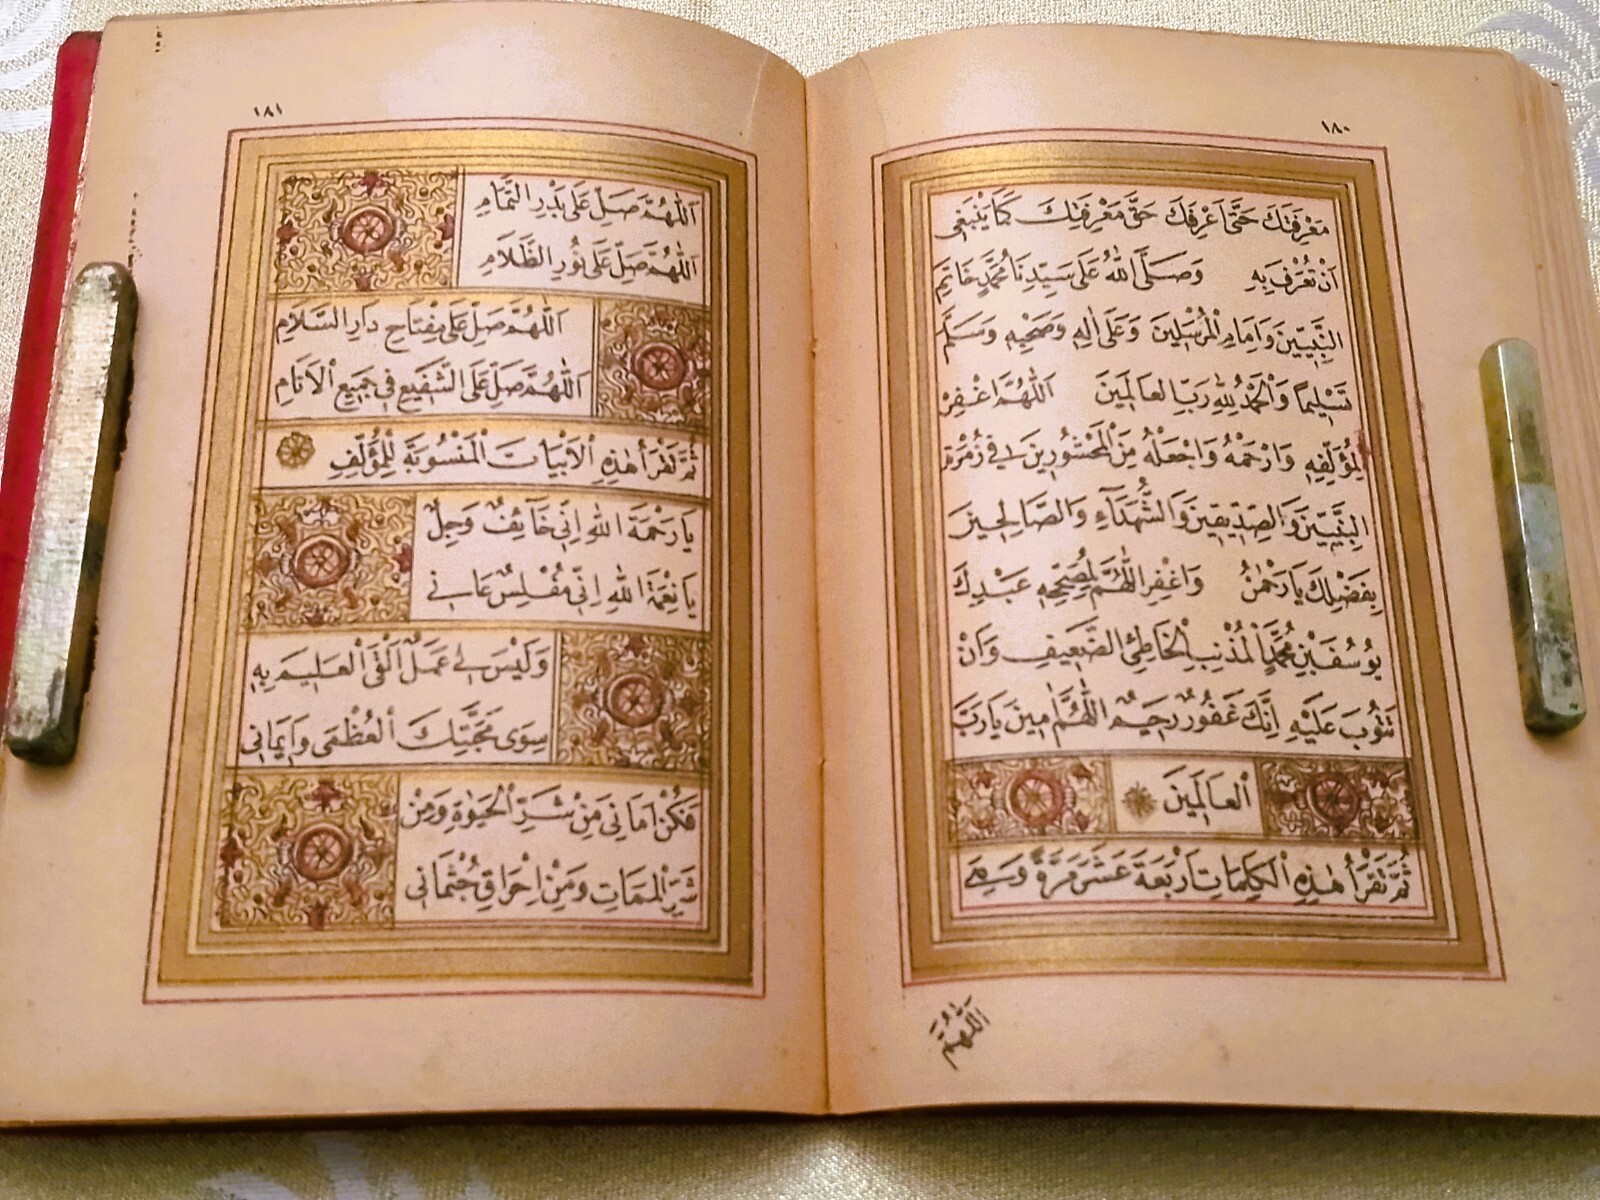 ١٨٠
مَعْرِفَتَكَ حَتّٰى اَعْرِفَكَ حَقَّ مَعْرِفَتِكَ كَمَا يَنْبَغِى
اَنْ تُعْرَفَ بِهِ وَصَلَّى اللهُ عَلٰى سَيِّدِنَا مُحَمَّدٍ خَاتِمِ
النَّبِيّٖنَ وَاِمَامِ الْمُرْسَلِينَ وَعَلٰى اٰلِهِ وَصَحْبِهِ وَسَلَّمَ
تَسْلِيمًا وَالْحَمْدُ لِلّٰهِ رَبِّ الْعَالَمِينَ اَللّٰهُمَّ اغْفِرْ
لِمُؤَلِّفِهِ وَارْحَمْهُ وَاجْعَلْهُ مِنَ الْمَحْشُورِينَ فِى زُمْرَةِ
النَّبِيِّينَ وَالصِّدِّيقِينَ وَالشُّهَدَآءِ وَالصَّالِحِينَ
بِفَضْلِكَ يَارَحْمٰنُ وَاغْفِرِ اللّٰهُمَّ لِمُصَحِّحِهِ عَبْدِكَ
يُوسُفَ بْنِ مُحَمَّدٍ الْمُذْنِبِ الْخَاطِئِ الضَّعِيفِ وَاَنْ
تَتُوبَ عَلَيْهِ اِنَّكَ غَفُورٌ رَحِيمٌ اَللّٰهُمَّ اٰمِينَ يَارَبَّ
الْعَالَمِينَ
ثُمَّ تَقْرَأُ هٰذِهِ الْكَلِمَاتِ اَرْبَعَةَ عَشَرَ مَرَّةً وَهِىَ
اَللّٰهُمَّ
١٨١
اَللّٰهُمَّ صَلِّ عَلٰى بَدْرِ التَّمَامِ
اَللّٰهُمَّ صَلِّ عَلٰى نُورِ الظَّلَامِ
اَللّٰهُمَّ صَلِّ عَلٰى مِفْتَاحِ دَارِ السَّلَامِ
اَللّٰهُمَّ صَلِّ عَلَى الشَّفِيعِ فِى جَمِيعِ الْاَنَامِ
ثُمَّ تَقْرَأُ هٰذِهِ الْاَبْيَاتَ الْمَنْسُوبَةَ لِلْمُؤَلِّفِ
يَارَحْمَةَ اللهِ اِنِّى خَآئِفٌ وَجِلٌ
يَانِعْمَةَ اللهِ اِنِّى مُفْلِسٌ عَانِى
وَلَيْسَ لِى عَمَلٌ اَلْقَى الْعَلِيمَ بِهِ
سِوٰى مَحَبَّتِكَ الْعُظْمٰى وَاِيمَانِى
فَكُنْ اَمَانِى مِنْ شَرِّ الْحَيٰوةِ وَمِنْ
شَرِّ الْمَمَاتِ وَمِنْ اِحْرَاقِ جُثْمَانِى